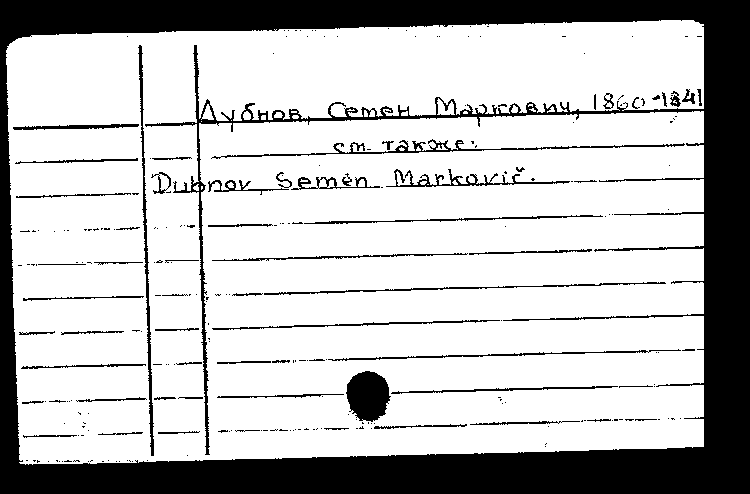 Дубнов, Семен Маркович, 1860-1941
см. также:
Dubnov, Semen Markovič.